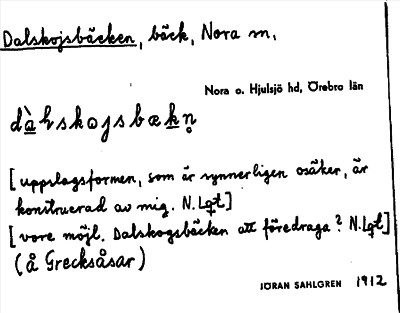 Dalskojsbäcken, bäck, Nora sn.
Nora o. Hjulsjö hd, Örebro län
[uppslagsformen, som är synnerligen osäker, är
konstruerad av mig. N. Lgt]
[vore möjl. Dalskogsbäcken att föredraga? N. Lgt]
(å Grecksåsar)
JÖRAN SAHLGREN 1912